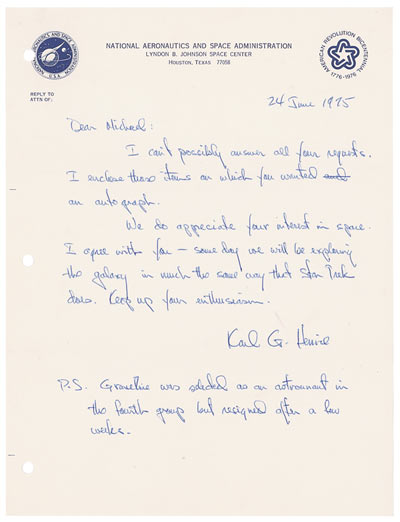 NATIONAL AERONAUTICS AND SPACE ADMINISTRATION
LYNDON B. JOHNSON SPACE CENTER
HOUSTON, TEXAS 77058
NATIONAL AERONAUTICS AND SPACE ADMINISTRATION
U.S.A.
AMERICAN REVOLUTION BICENTENNIAL
1776-1976
REPLY TO
ATTN OF:
24 June 1975
Dear Michael:
I can't possibly answer all your requests.
I enclose those items on which you wanted
an autograph.
We do appreciate your interest in space.
I agree with you – some day we will be exploring
the galaxy in much the same way that Star Trek
does. Keep up your enthusiasm.
Karl G. Henize
P.S. Graveline was selected as an astronaut in
the fourth group but resigned after a few
weeks.